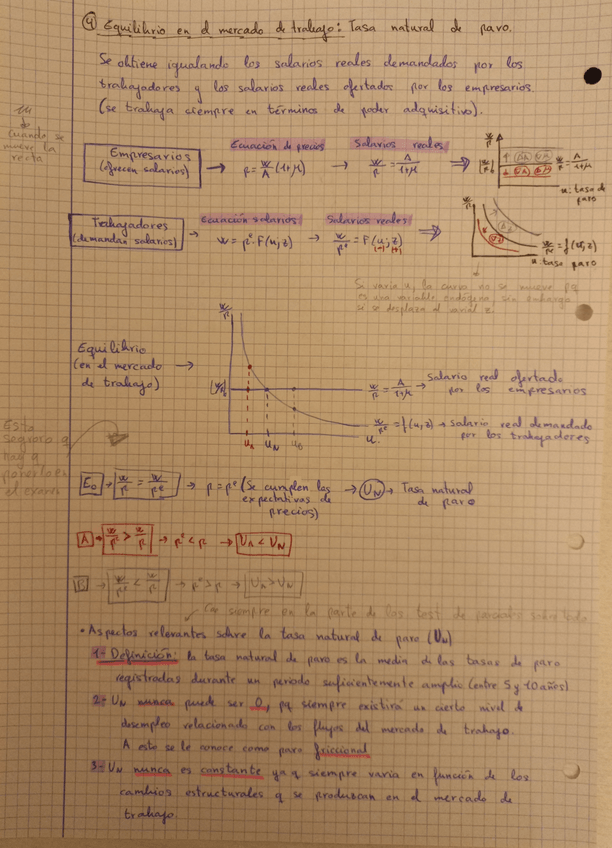 ④ Equilibrio en el mercado de trabajo: Tasa natural de paro.
Se obtiene igualando los salarios reales demandados por los
trabajadores y los salarios reales ofertados por los empresarios.
(se trabaja siempre en términos de poder adquisitivo).
cuando se
mueve la
recta
Empresarios
(ofrecen salarios) → Ecuación de precios P = W/A (1+μ) → Salarios reales W/P = A/(1+μ) ⇒
W/P
W/P = A/(1+μ)
u: tasa de
paro
Trabajadores
(demandan salarios) → Ecuación salarios W = Pᵉ · F(u; z) → Salarios reales W/Pᵉ = F(u; z) ⇒
(-) (+)
W/P
W/Pᵉ = f(u; z)
u: tasa paro
Si varía u, la curva no se mueve pq
es una variable endógena, sin embargo
si se desplaza al variar z.
W/P
Equilibrio
(en el mercado
de trabajo) →
W/P = A/(1+μ) → Salario real ofertado
por los empresarios
W/Pᵉ = f(u, z) → salario real demandado
por los trabajadores
u_A u_N u_B u.
Esto
seguro q
hay q
ponerlo en
el exam
E₀ → W/P = W/Pᵉ → P = Pᵉ (Se cumplen las
expectativas de
precios) → U_N → Tasa natural
de paro
A → W/Pᵉ > W/P → Pᵉ < P → U_A < U_N
B → W/Pᵉ < W/P → Pᵉ > P → U_B > U_N
Cae siempre en la parte de los test de parciales
• Aspectos relevantes sobre la tasa natural de paro (U_N)
1- Definición: la tasa natural de paro es la media de las tasas de paro
registradas durante un periodo suficientemente amplio (entre 5 y 10 años)
2- U_N nunca puede ser 0, pq siempre existirá un cierto nivel de
desempleo relacionado con los flujos del mercado de trabajo.
A esto se le conoce como paro friccional
3- U_N nunca es constante ya q siempre varía en función de los
cambios estructurales q se produzcan en el mercado de
trabajo.